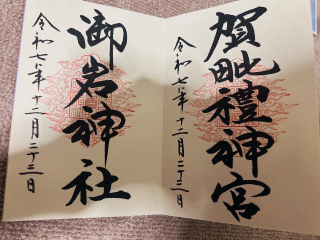 賀毗禮神宮
令和七年十二月二十三日
御岩神社
令和七年十二月二十三日